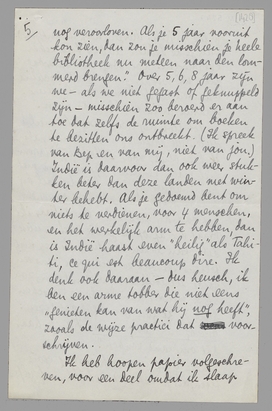 5/
nog veroorloven. Als je 5 jaar vooruit
kon zien, dan zou je misschien je heele
bibliotheek nu meteen naar den lom-
merd brengen." Over 5, 6, 8 jaar zijn
we - als we niet gefast of geknuppeld
zijn - misschien zoo beroerd er aan
toe dat zelfs de ruimte om boeken
te bezitten ons ontbreekt. (Ik spreek
van Bep en van mij, niet van jou.)
Indië is daarvoor dan ook weer stuk-
ken beter dan deze landen met win-
ter behebt. Als je gedoemd bent om
niets te verdienen, voor 4 menschen,
en het werkelijk arm te hebben, dan
is Indië haast even "heilig" als Tahi-
ti, ce qui est beaucoup dire. Ik
denk ook daaraan - dus heusch, ik
ben een arme tobber die niet eens
"genieten kan van wat hij nog heeft",
zooals de wijze practici dat voor-
schrijven.
Ik heb hoopen papier volgeschre-
ven, voor een deel omdat ik slaap